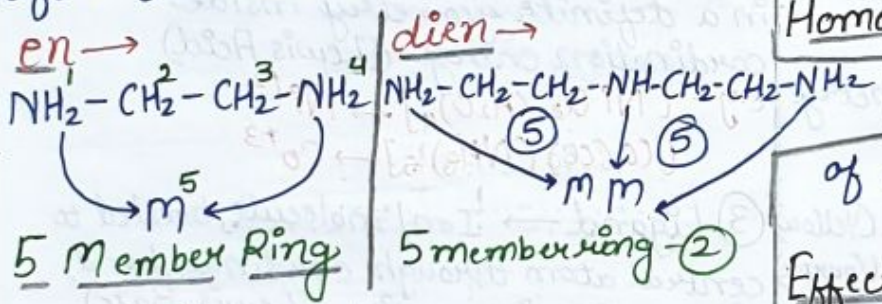 en →
NH₂ - CH₂ - CH₂ - NH₂
1 2 3 4
M 5
5 Member Ring
dien →
NH₂ - CH₂ - CH₂ - NH - CH₂ - CH₂ - NH₂
5 5
M M
5 member ring - 2
Homo
of
Effec